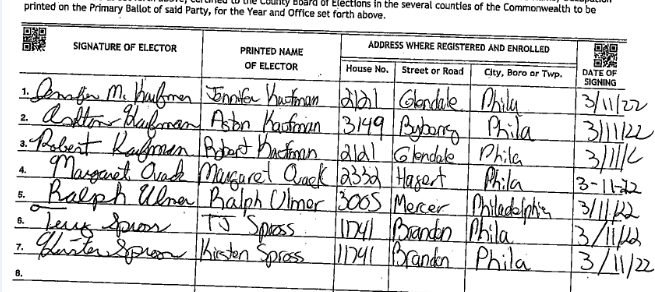 printed on the Primary Ballot of said Party, for the Year and Office set forth above.
SIGNATURE OF ELECTOR PRINTED NAME OF ELECTOR ADDRESS WHERE REGISTERED AND ENROLLED DATE OF SIGNING
House No. Street or Road City, Boro or Twp.
1. Jennifer M. Kaufman Jennifer Kaufman 2121 Glendale Phila 3/11/22
2. Kaufman Kaufman 3149 Byberry Phila 3/11/22
3. Robert Kaufman Robert Kaufman 2121 Glendale Phila 3/11/
4. Margaret Margaret 2332 Hagert Phila 3-11-22
5. Ralph Ulmer Ralph Ulmer 3005 Mercer Philadelphia 3/11/22
6. Spross TJ Spross 11741 Brandon Phila 3/11/22
7. Spross Kirsten Spross 11741 Brandon Phila 3/11/22
8.